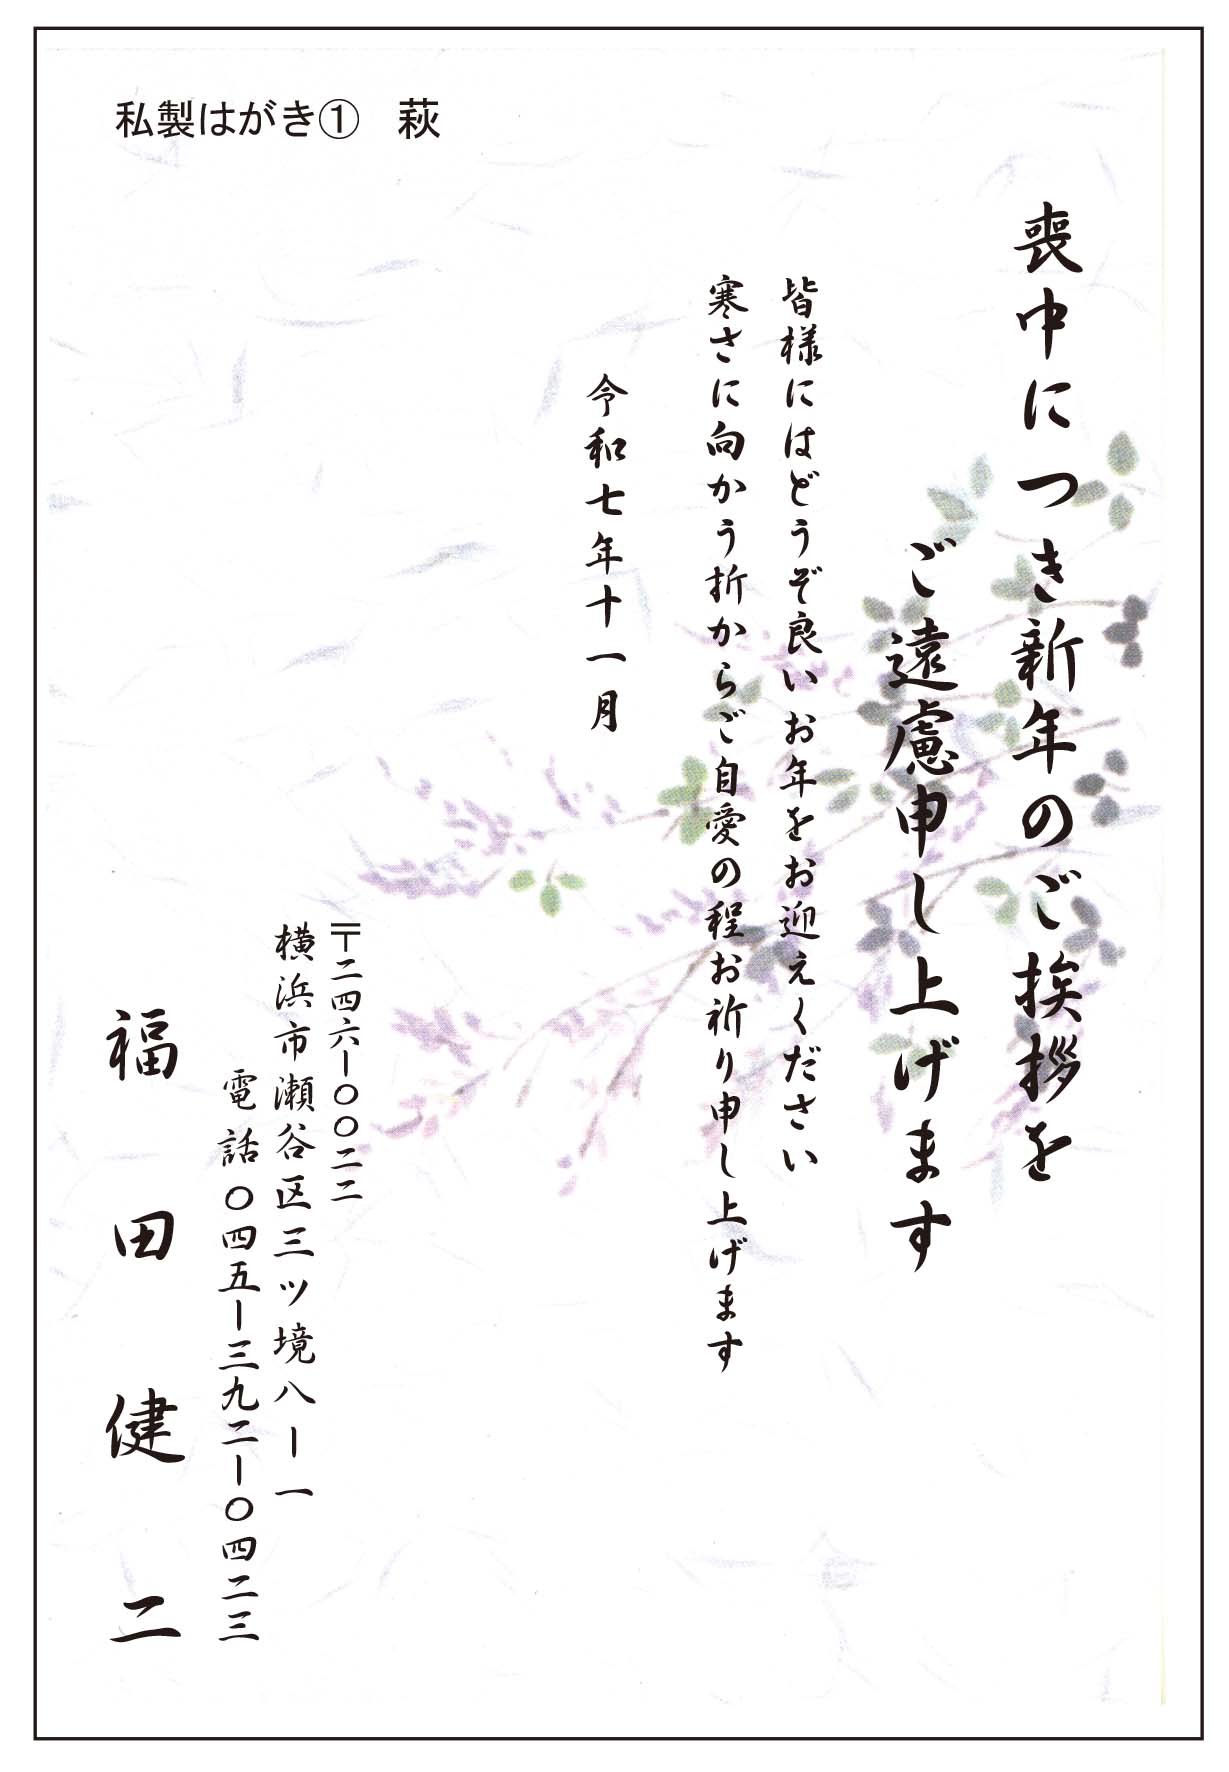 私製はがき① 萩
喪中につき新年のご挨拶を
ご遠慮申し上げます
皆様にはどうぞ良いお年をお迎えください
寒さに向かう折からご自愛の程お祈り申し上げます
令和七年十一月
〒二四六ー〇〇二二
横浜市瀬谷区三ツ境八ー一
電話〇四五ー三九二ー〇四二三
福田健二